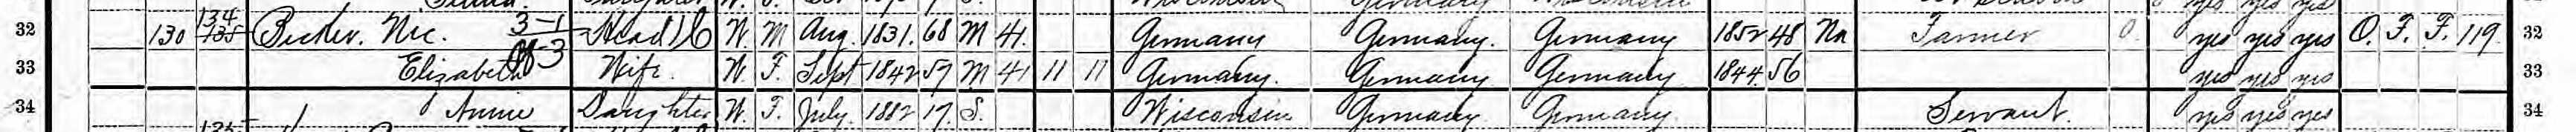 32 130 134 135 Becker. Nic. 3-1 Head 16 W. M Aug. 1831. 68 M 41. Germany Germany. Germany 1852 48 Na Farmer 0. yes yes yes O. F. F. 119 32
33 Elizabeth Wife. W. F. Sept 1842 57 M 41 11 11 Germany. Germany Germany 1844 56 yes yes yes 33
34 Annie Daughter W. F. July. 1882 17. S. Wisconsin Germany Germany Servant. yes yes yes 34